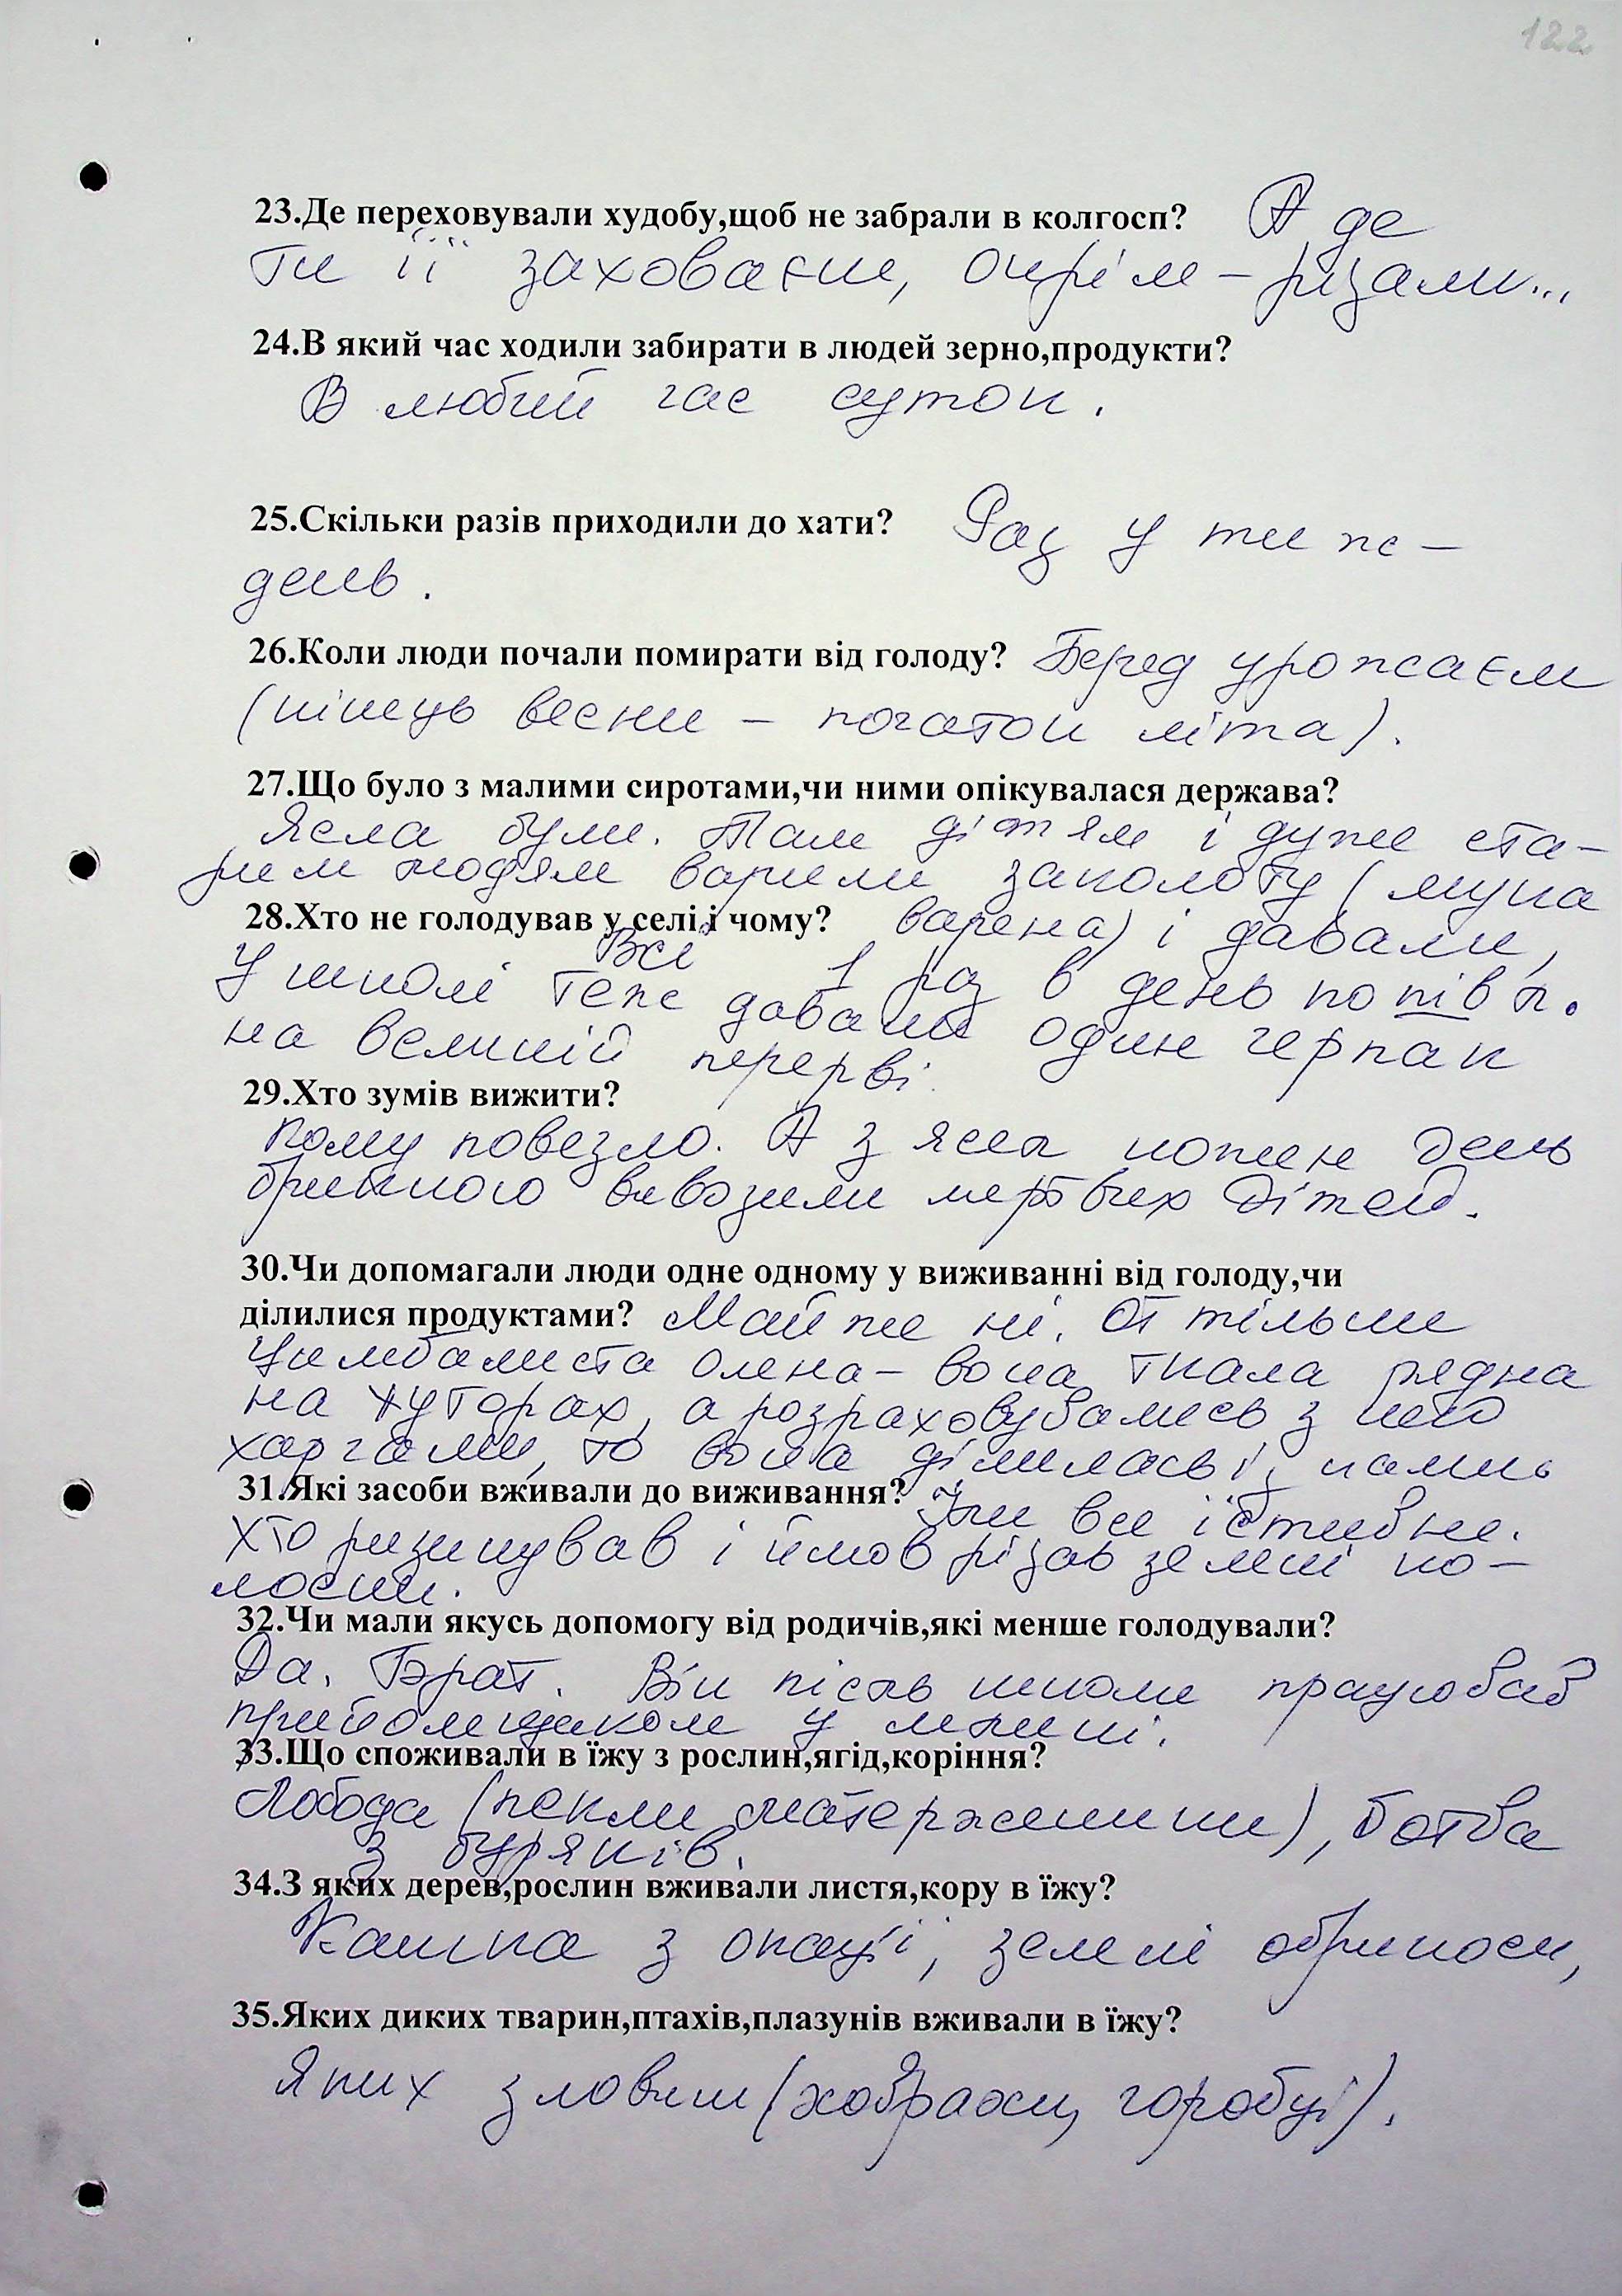 122
23.Де переховували худобу,щоб не забрали в колгосп? А де
ти її заховаєш, окрім – різали...
24.В який час ходили забирати в людей зерно,продукти?
В любий час суток.
25.Скільки разів приходили до хати? Раз у тиж-
день.
26.Коли люди почали помирати від голоду? Перед урожаєм
(кінець весни – початок літа).
27.Що було з малими сиротами,чи ними опікувалася держава?
Ясла були. Там дітям і дуже ста-
рим людям варили заколоту (мука
28.Хто не голодував у селі,і чому? варена) і давали,
Всі 1 раз в день по пів л.
У школі теж давали один черпак
на великій перерві.
29.Хто зумів вижити?
Кому повезло. А з ясел кожен день
бричкою вивозили мертвих дітей.
30.Чи допомагали люди одне одному у виживанні від голоду,чи
ділилися продуктами? Майже ні. От тільки
Цимбаліста Олена – вона ткала рядна
на хуторах, а розраховувались з нею
харчами, то вона ділилась і з нами.
31.Які засоби вживали до виживання? Їли все їстивне.
Хто ризикував і йшов різав зелені ко-
лоски.
32.Чи мали якусь допомогу від родичів,які менше голодували?
Да. Брат. Він після школи працював
прийомщиком у млині.
33.Що споживали в їжу з рослин,ягід,коріння?
Лобода (пекли маторженики), ботва
з буряків.
34.З яких дерев,рослин вживали листя,кору в їжу?
Кашка з акації, зелені абрикоси,
35.Яких диких тварин,птахів,плазунів вживали в їжу?
Яких зловиш (ховрахи, горобці).